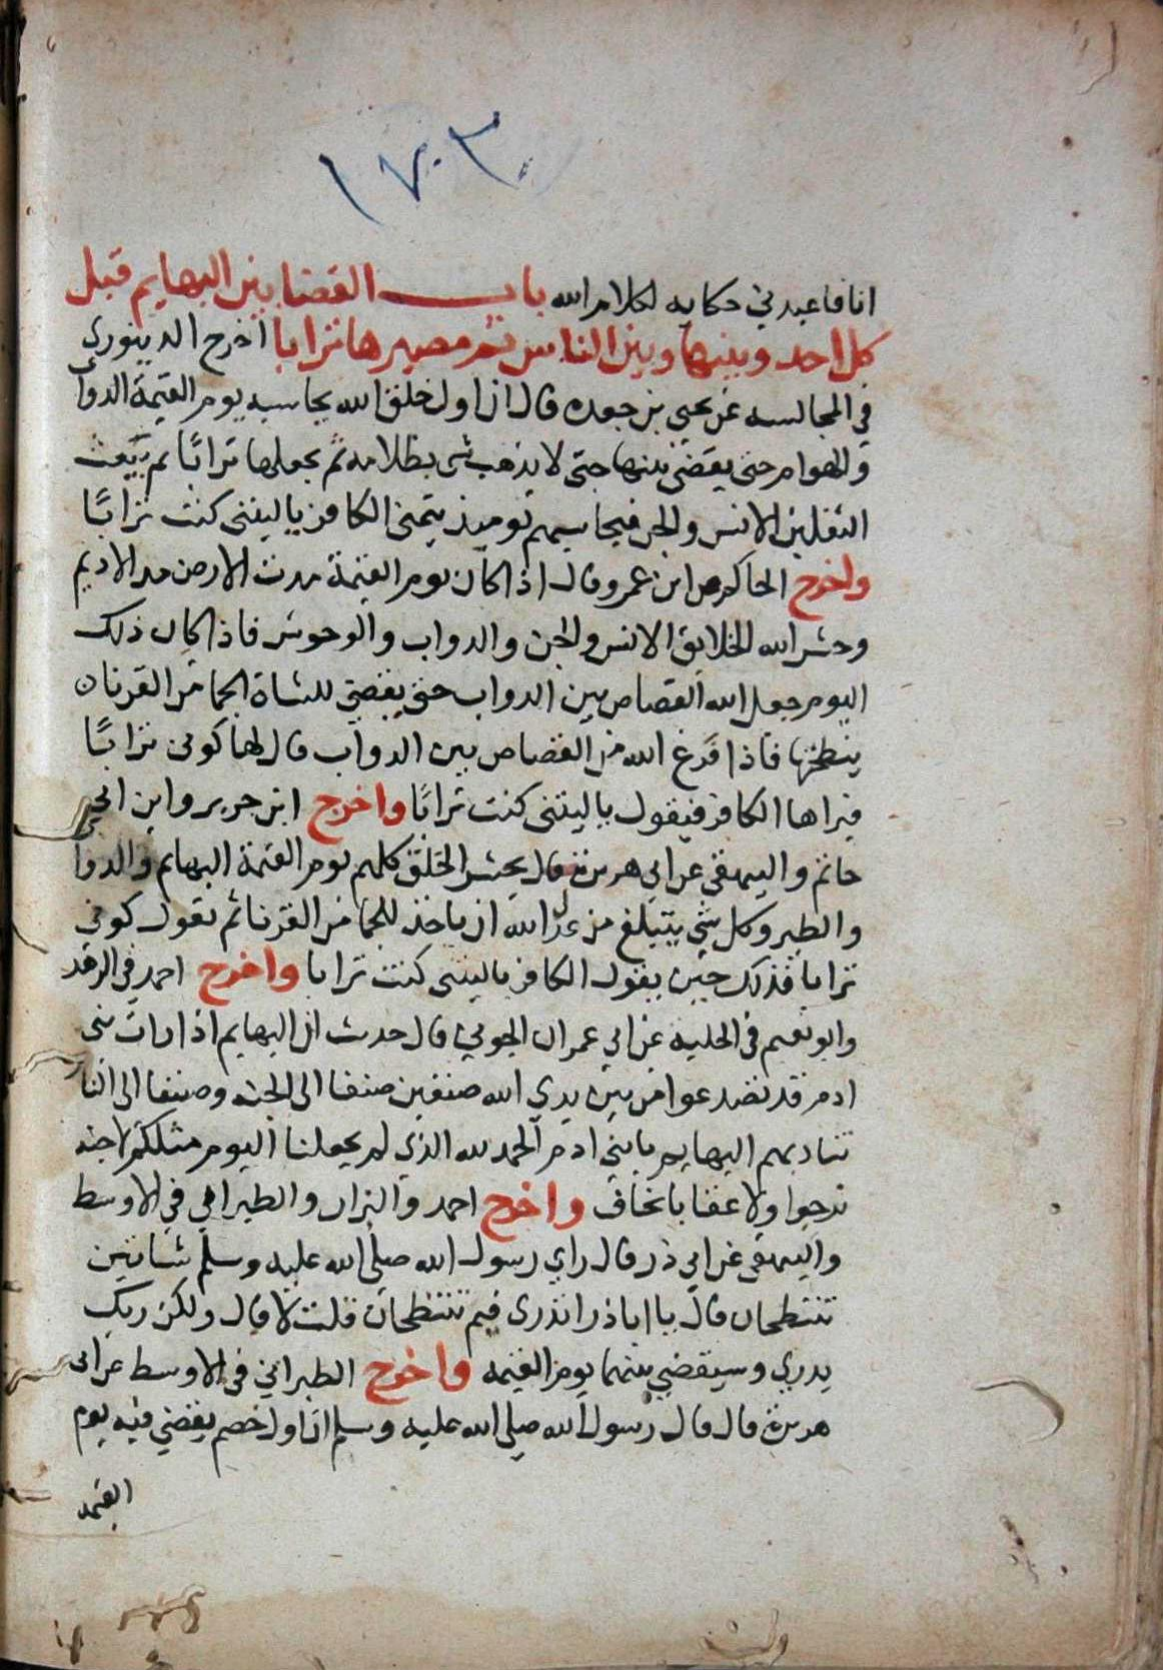 ١٧٠٣
انا فاعبدني حكايه لكلام الله باب القضا بين البهايم قبل
كل احد وبينها وبين الناس ثم مصيرها ترابا اخرج الدينوري
في المجالسه عن يحيى بن جعده قال ان اول خلق الله يحاسبه يوم القيمة الدواب
والهوام حتى يقضي بينها حتى لا يذهب شى بظلامه ثم يجعلها ترابًا ثم يبعث
الثقلين الانس والجن فيحاسبهم يوميذ يتمنى الكافر ياليتنى كنت ترابًا
واخرج الحاكم عن ابن عمرو قال اذا كان يوم القيمة مدت الارض مد الاديم
وحشر الله الخلايق الانس والجن والدواب والوحوش فاذا كان ذلك
اليوم جعل الله القصاص بين الدواب حتى يقضي للشاة الجما من القرنا ان
ينطحتها فاذا فرغ الله من القصاص بين الدواب قال لها كونى ترابًا
فيراها الكافر فيقول ياليتنى كنت ترابًا واخرج ابن جرير وابن ابي
حاتم والبيهقي عن ابي هريرة قال يحشر الخلق كلهم يوم القيمة البهايم والدواب
والطير وكل شي يتبلغ من عدل الله ان ياخذ للجما من القرنا ثم يقول كوني
ترابا فذلك حين يقول الكافر ياليتنى كنت ترابا واخرج احمد في الزهد
وابو نعيم في الحليه عن ابي عمران الجوني قال حدث ان البهايم اذا رات بنى
ادم قد تضدعوا من بين يدي الله صنفين صنفا الى الجنه وصنفا الى النار
تناديهم البهايم يا بني ادم الحمد لله الذي لم يجعلنا اليوم مثلكم لا جنه
نرجوا ولا عقابا نخاف واخرج احمد والبزار والطبراني في الاوسط
والبيهقي عن ابي ذر قال راي رسول الله صلى الله عليه وسلم شاتين
تنتطحان قال يا اباذر اتدرى فيم تنتطحان قلت لا قال ولكن ربك
يدري وسيقضي بينهما يوم القيمه واخرج الطبراني في الاوسط عن ابي
هريرة قال قال رسول الله صلى الله عليه وسلم ان اول خصم يقضي فيه يوم
القيمه